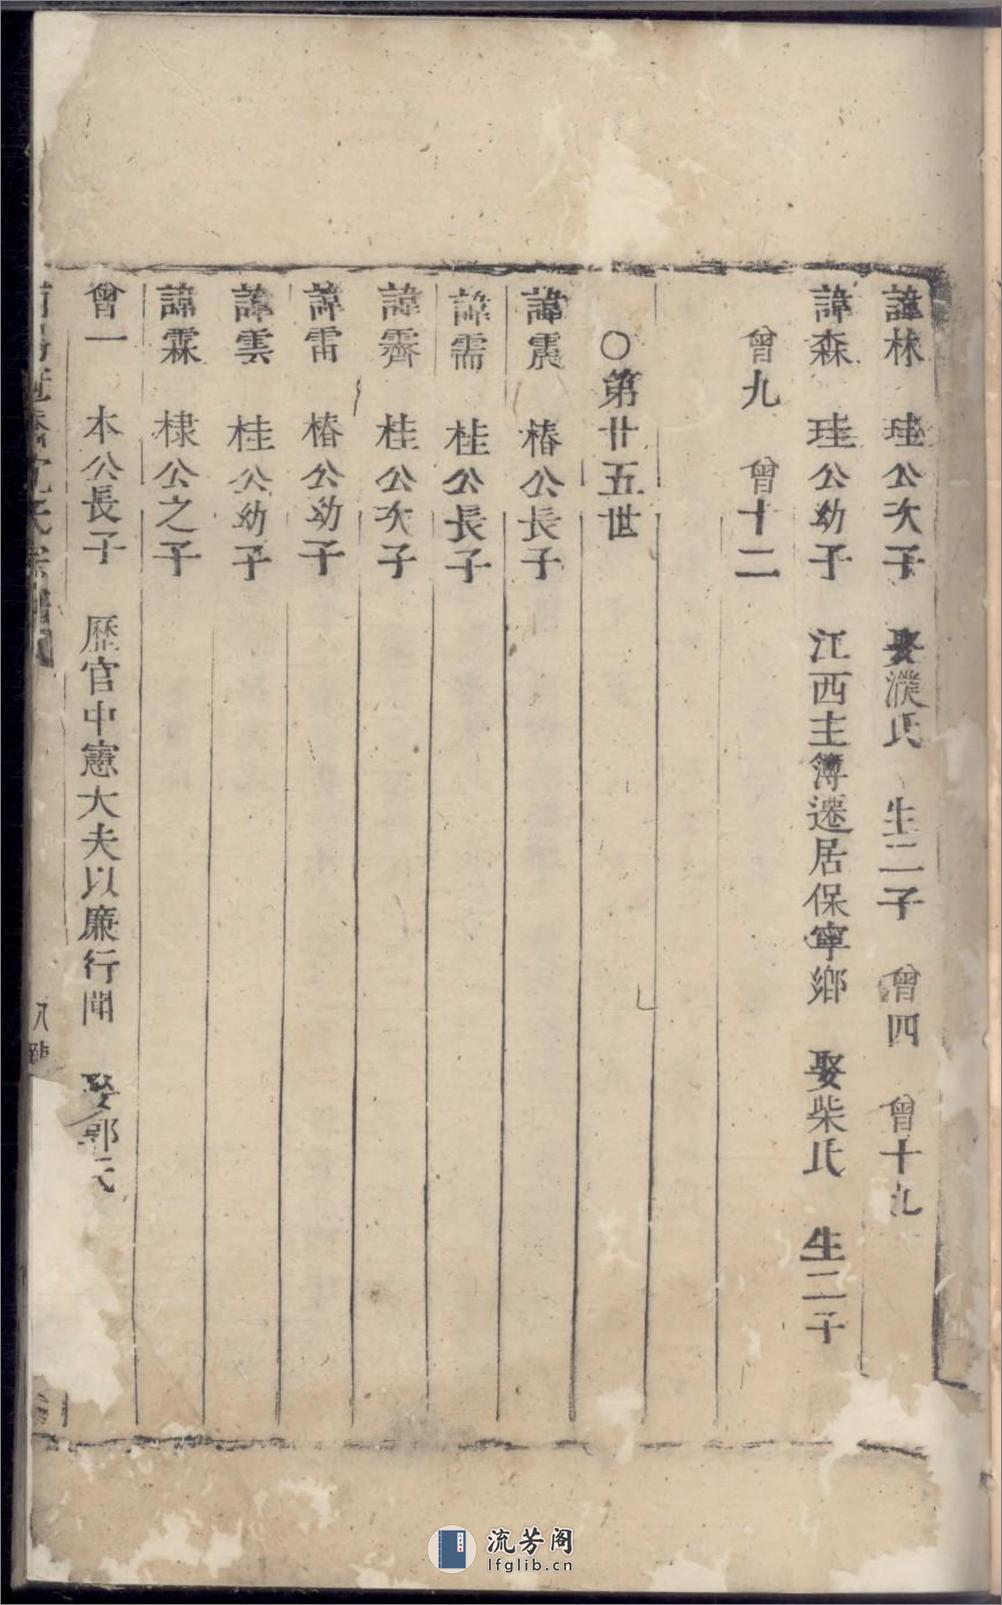 諱林　珪公次子　娶濮氏　生二子　曾四　曾十九
諱森　珪公幼子　江西主簿遷居保寧鄉　娶柴氏　生二子
曾九　曾十二
○第廿五世
諱震　椿公長子
諱需　桂公長子
諱霽　桂公次子
諱雷　椿公幼子
諱雲　桂公幼子
諱霖　棣公之子
曾一　本公長子　歷官中憲大夫以廉行聞　娶郭氏
氏宗譜
八
流芳阁
lfglib.cn